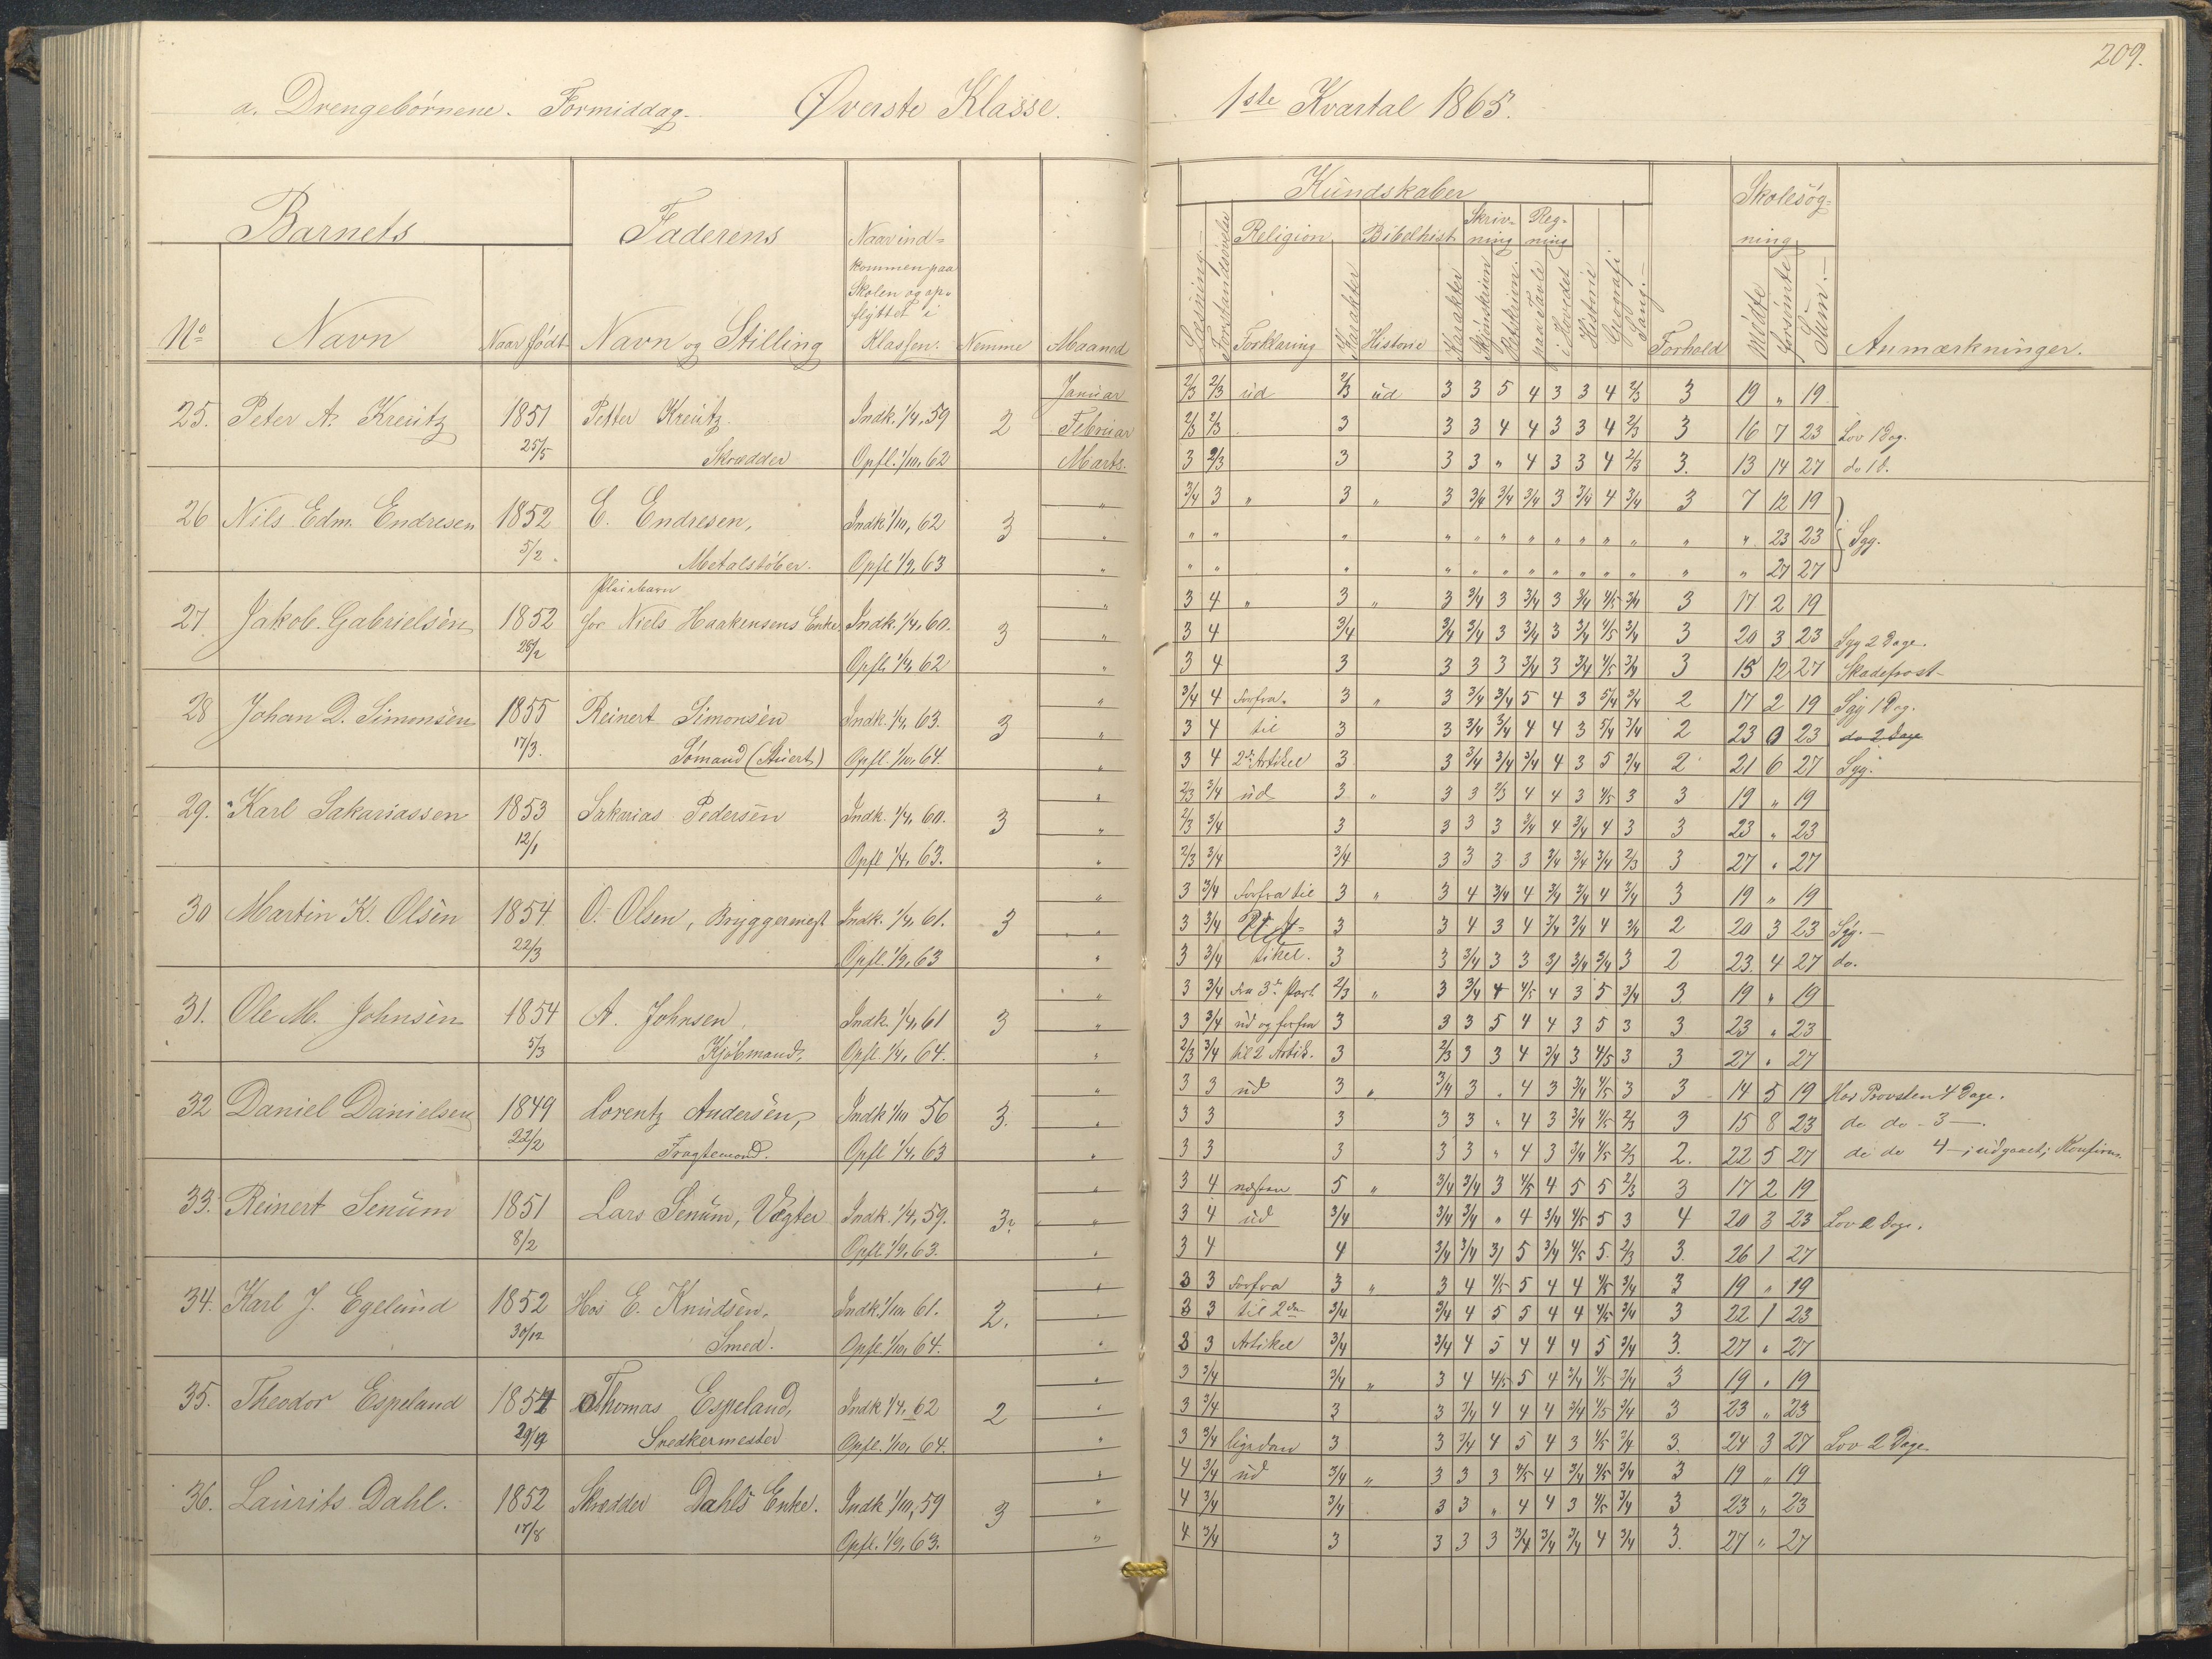 209.
a. Drengebørnene. Formiddag. Øverste Klasse. 1ste Kvartal 1865.
Barnets Faderens Naar ind=
kommen paa
Skolen og op=
flyttet i
No Navn Naar født Navn og Stilling Klassen. Nemme Maaned
Kundskaber Skolesøg=
ning
Religion Bibelhist. Skriv=
ning Reg=
ning
Læsning Forstandsøvelse Forklaring Karakter Historie Karakter Skjønskriven Retskriven paa Tavle i Hovedet Historie Geografi Sang Forhold Mødte Forsømte Sum. Anmærkninger.
25. Peter A. Kreutz 1851 Petter Kreutz. Indk. 1/4, 59 2 Januar
25/5 Skrædder Opfl. 1/10, 62 Februar
Marts.
2/3 2/3 ud 2/3 ud 3 3 5 4 3 3 4 2/3 3 19 " 19
2/3 2/3 3 3 3 4 4 3 3 4 2/3 3 16 7 23 Lov 1 Dag.
3 2/3 3 3 3 " 4 3 3 4 2/3 3. 13 14 27 do 1 d.
26 Nils Edm. Endresen 1852 E. Endresen, Indk 1/10, 62 3
5/2. Metalstøber. Opfl 1/9, 63
3/4 3 " 3 " 3 3/4 3/4 3/4 3 3/4 4 3/4 3 7 12 19
" " " " " " " " " " " " " 23 23 Syg.
" " " " " " " " " " " " " 27 27
27. Jakob Gabrielsen 1852 Pleiebarn
for Niels Haakensens Enke Indk. 1/4, 60. 3
28/2 Opfl. 1/4, 62
3 4 " 3 " 3 3/4 3 3/4 3 3/4 4/5 3/4 3 17 2 19
3 4 3/4 3/4 3/4 3 3/4 3 3/4 4/5 3/4 3 20 3 23 Syg 2 Dage.
3 4 3 3 3 3 3/4 3 3/4 4/5 3/4 3 15 12 27 Skadefrost
28 Johan D. Simonsen 1855 Reinert Simonsen Indk. 1/4, 63. 3
17/3. Sømand (Stuert) Opfl. 1/10, 64.
3/4 4 Forfra. 3 " 3 3/4 3/4 5 4 3 5/4 3/4 2 17 2 19 Syg 1 Dag.
3 4 til 3 3 3/4 3/4 4 4 3 5/4 3/4 2 23 0 23 do 2 Dage
3 4 2den Artikel 3 3 3/4 3/4 3/4 4 3 5 3/4 2 21 6 27 Syg.
29. Karl Sakariassen 1853 Sakarias Pedersen Indk. 1/4, 60. 3
12/1 Opfl 1/4, 63.
2/3 3/4 ud 3 " 3 3 2/3 4 4 3 4/5 3 3 19 " 19
2/3 3/4 3 3 3 3 3/4 4 3/4 4 3 3 23 " 23
2/3 3/4 3/4 3 3 3 3 3/4 3/4 3/4 2/3 3 27 " 27
30 Martin K. Olsen 1854 O. Olsen, Bryggermest Indk. 1/4, 61. 3
22/3 Opfl. 1/9, 63
3 3/4 Forfra til 3 " 3 4 3/4 4 3/4 3/4 4 3/4 3 19 " 19
3 3/4 3 3 4 3 4 3/4 3/4 4 3/4 2 20 3 23 Syg.
3 3/4 tikel. 3 3 3/4 3 3 3/ 3/4 3/4 3 2 23. 4 27 do.
31. Ole M. Johnsen 1854 A. Johnsen, Indk. 1/4, 61 3
5/3 Kjøbmand, Opfl. 1/4, 64.
3 3/4 Fra 3die Part. 2/3 " 3 3/4 4 4/5 4 3 5 3/4 3. 19 " 19
3 3/4 ud og forfra 3 3 3 5 4 4 3 5 3 3 23 " 23
2/3 3/4 til 2 Artik. 3 2/3 3 3 4 3/4 3 4/5 3 3 27 " 27
32 Daniel Danielsen 1849 Lorentz Andersen, Indk 1/10 56 3.
22/2 Fragtemand. Opfl 1/4, 63
3 3 ud 3 " 3/4 3 " 4 3 3/4 4/5 3 3 14 5 19 Hos Provsten 4 Dage.
3 3 3 3 3 " 4 3 3/4 4/5 2/3 3 15 8 23 do do - 3 —.
3 3 3 3 3 " 4 3 3/4 4/5 2/3 2. 22 5 27 do do 4 —; udgaaet; Konfirm.
33. Reinert Senum 1851 Lars Senum, Vægter Indk. 1/4, 59. 3.
8/2 Opfl 1/9, 63.
3 4 næsten 5 " 3/4 3/4 3 4/5 4 5 5 2/3 3 17 2 19
3 4 ud 3/4 3/4 3/4 " 4 3/4 4/5 5 3 4 20 3 23 Lov 2 Dage.
3 4 4 3/4 3/4 3/ 5 3/4 4/5 5 2/3 3. 26 1 27
34. Karl J. Egelund 1852 Hos E. Knudsen. Indk. 1/10 61. 2.
30/12 Smed. Opfl. 1/10, 64.
3 3 Forfra 3 " 3 4 4/5 5 4 4 4/5 3/4 3 19 " 19
3 3 til 2den 3/4 3/4 4 5 5 4 4 4/5 3/4 3 22 1 23
3 3 Artikel 3/4 3/4 4 5 4 4 4 5 3/4 3. 27 " 27
35. Theodor Espeland 1854 Thomas Espeland, Indk 1/4, 62 2
Snedkermester Opfl. 1/10, 64.
3 3/4 3/4 " 3 4 4/5 5 4 3/4 4/5 3/4 3 19 " 19
3 3/4 3 3 3/4 4 4 4 3/4 4/5 3/4 3 23 " 23
3 3/4 ligedan 3 3 3/4 4 5 4 3 4/5 3/4 3. 24 3 27 Lov 2 Dage
36. Laurits Dahl. 1852 Skrædder Dahls Enke. Indk 1/10, 59 3
17/8 Opfl. 1/9, 63.
4 3/4 ud 3/4 " 3 3 3 4/5 4 3/4 4/5 3/4 3 19 " 19
4 3/4 3/4 3 3 " 4 4 3 4/5 3/4 3 23 " 23
4 3/4 3 3 3 3 3/4 3/4 3/4 4 3/4 3. 27 " 27